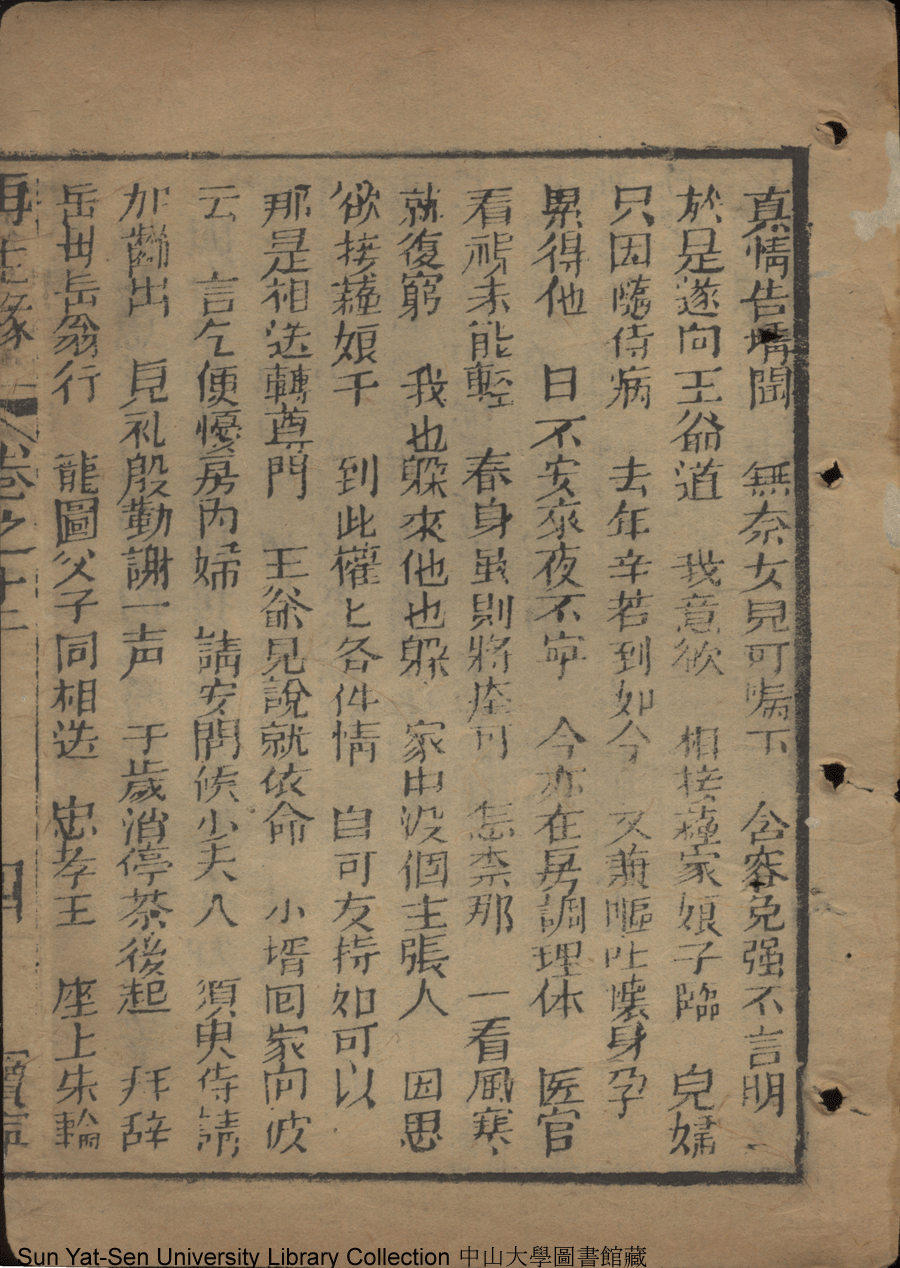 真情告壻聞　無奈女兒可嘱下　含容免强不言明
於是遂向王爺道　我意欲　相接蘊家娘子臨　皃媳
只因隨侍病　去年辛若到如今　又兼嘔吐懐身孕
累得他　日不安來夜不寧　今亦在房調理体　医官
看視未能輕　春身虽則將痊可　怎柰那　一看風寒
就復窮　我也躲來他也躲　家中没個主張人　因思
欲接蘊娘千　到此權匕各件情　自可友持如可以
那是相送轉尊門　王爺見說就依命　小壻囘家向彼
云　言乞便憂房内婦　請安問候少夫人　須臾侍請
加齒出　見礼殷勤謝一声　千歲治停茶後起　拜辞
岳毋岳翁行　龍圖父子同相送　忠孝王　座上朱輪
再生緣　卷之十二　四
Sun Yat-Sen University Library Collection 中山大學圖書館藏